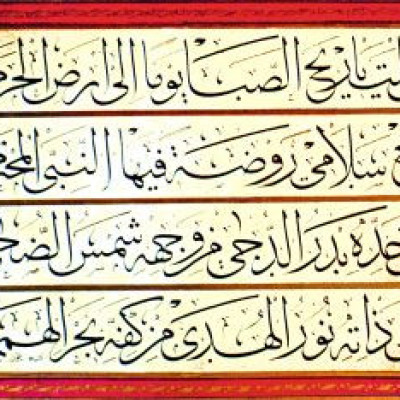 ياريح الصبا يوما الى ارض الحرم
سلامي روضة فيها النبي المحترم
خده بدر الدجى من وجهه شمس الضحى
ذاته نور الهدى من كفه بحر الهمم